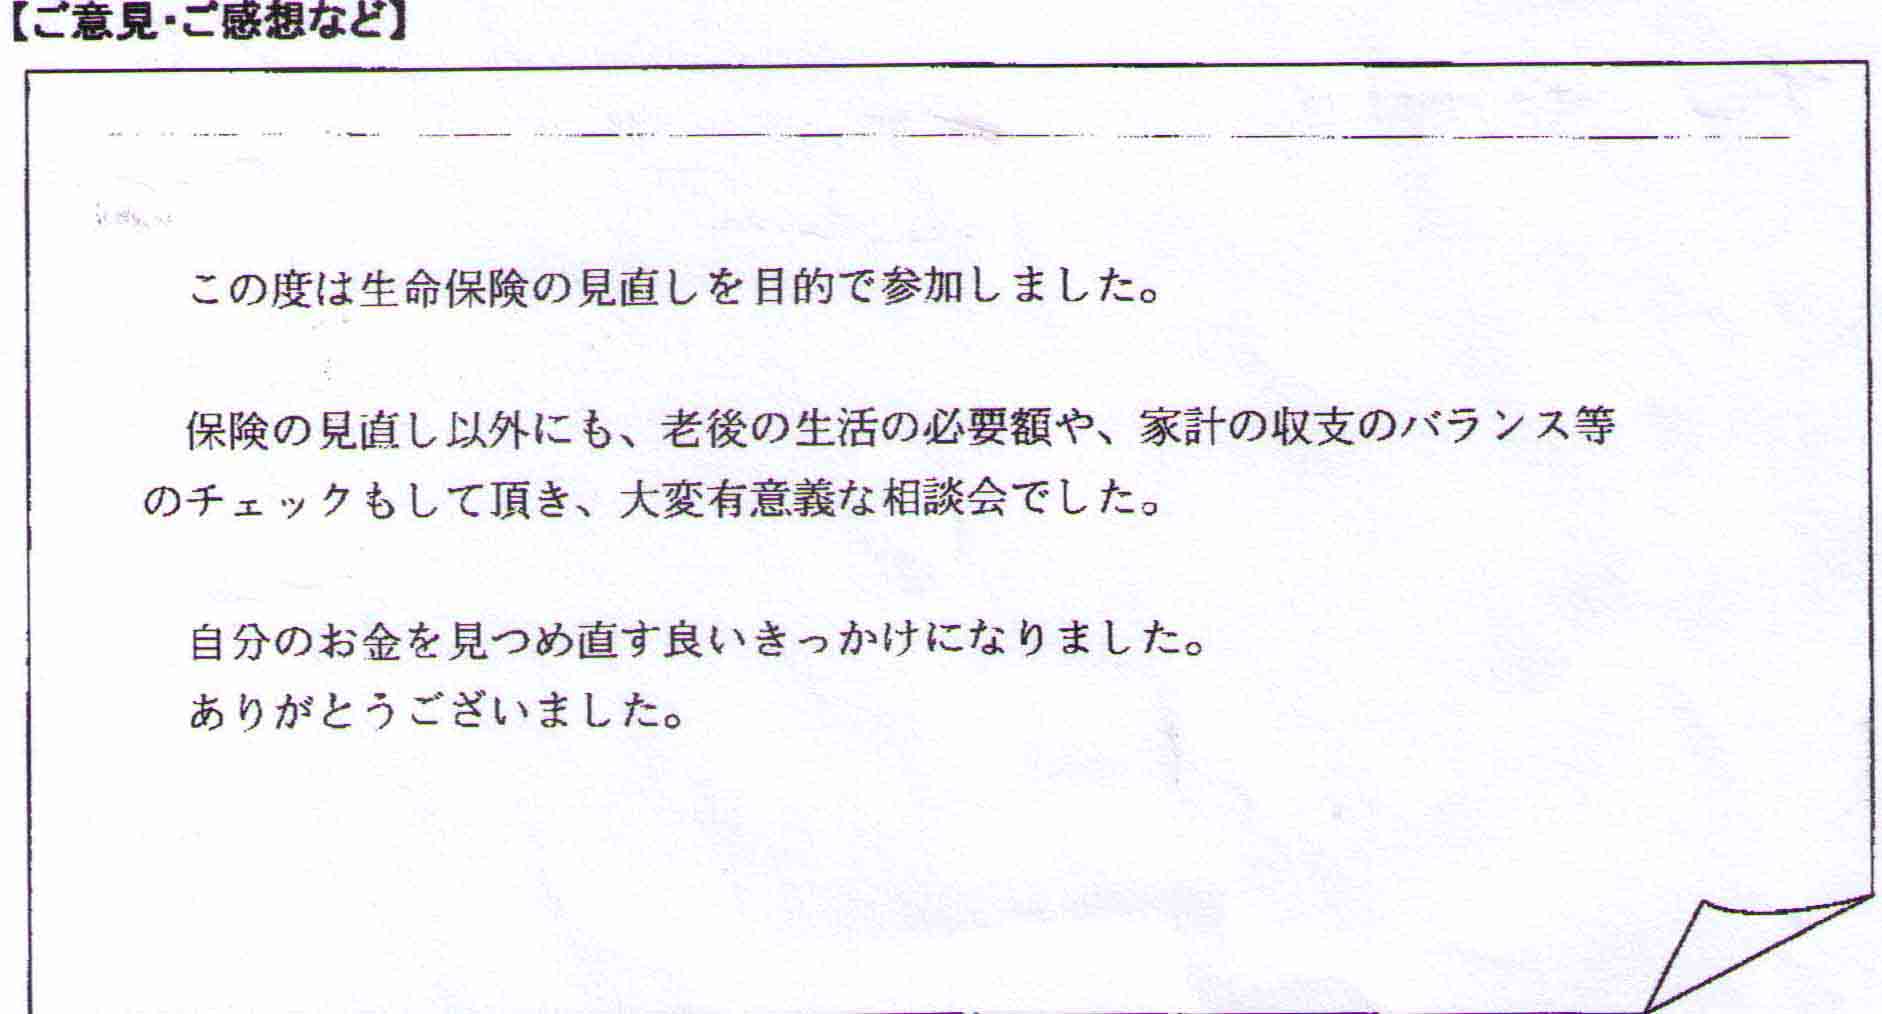 【ご意見・ご感想など】
この度は生命保険の見直しを目的で参加しました。
保険の見直し以外にも、老後の生活の必要額や、家計の収支のバランス等
のチェックもして頂き、大変有意義な相談会でした。
自分のお金を見つめ直す良いきっかけになりました。
ありがとうございました。